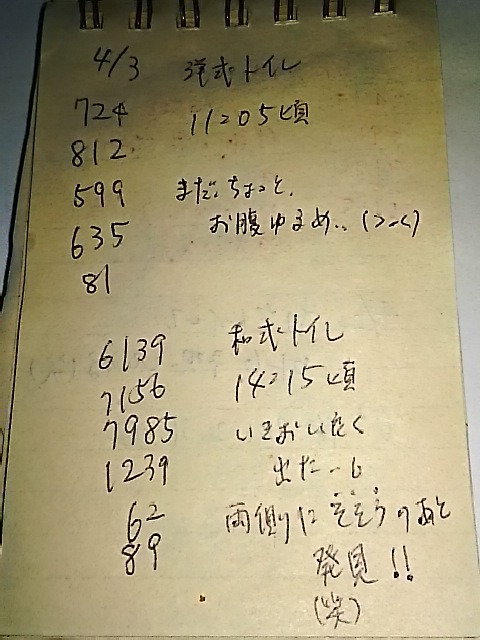 4/3 洋式トイレ
724 11:05頃
812
599 まだ、ちょっと、
635 お腹ゆるめ‥(>_<)
81
6139 和式トイレ
7156 14:15頃
7985 いきおいよく
1239 出た
62 両側にそそうのあと
89 発見!!
(笑)